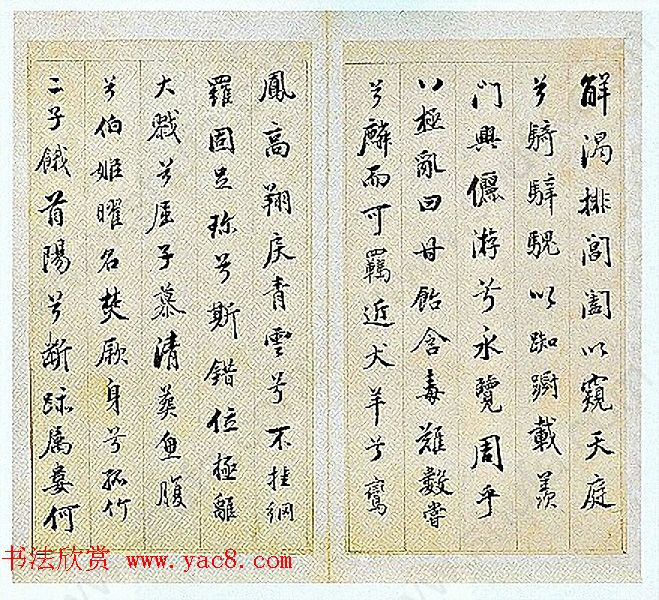 解渴排閶闔以窺天庭
兮騎騂騩以踟躕載羨
門與儷游兮永覽周乎
八極亂曰毋飴含毒難數嘗
兮麟而可羈近犬羊兮鸞
鳳高翔戾青雲兮不挂網
羅固足珍兮斯錯位極離
大戮兮屈子慕清葬魚腹
兮伯姬曜名焚厥身兮孤竹
二子餓首陽兮斷跡屬婁何
书法欣赏 www.yac8.com